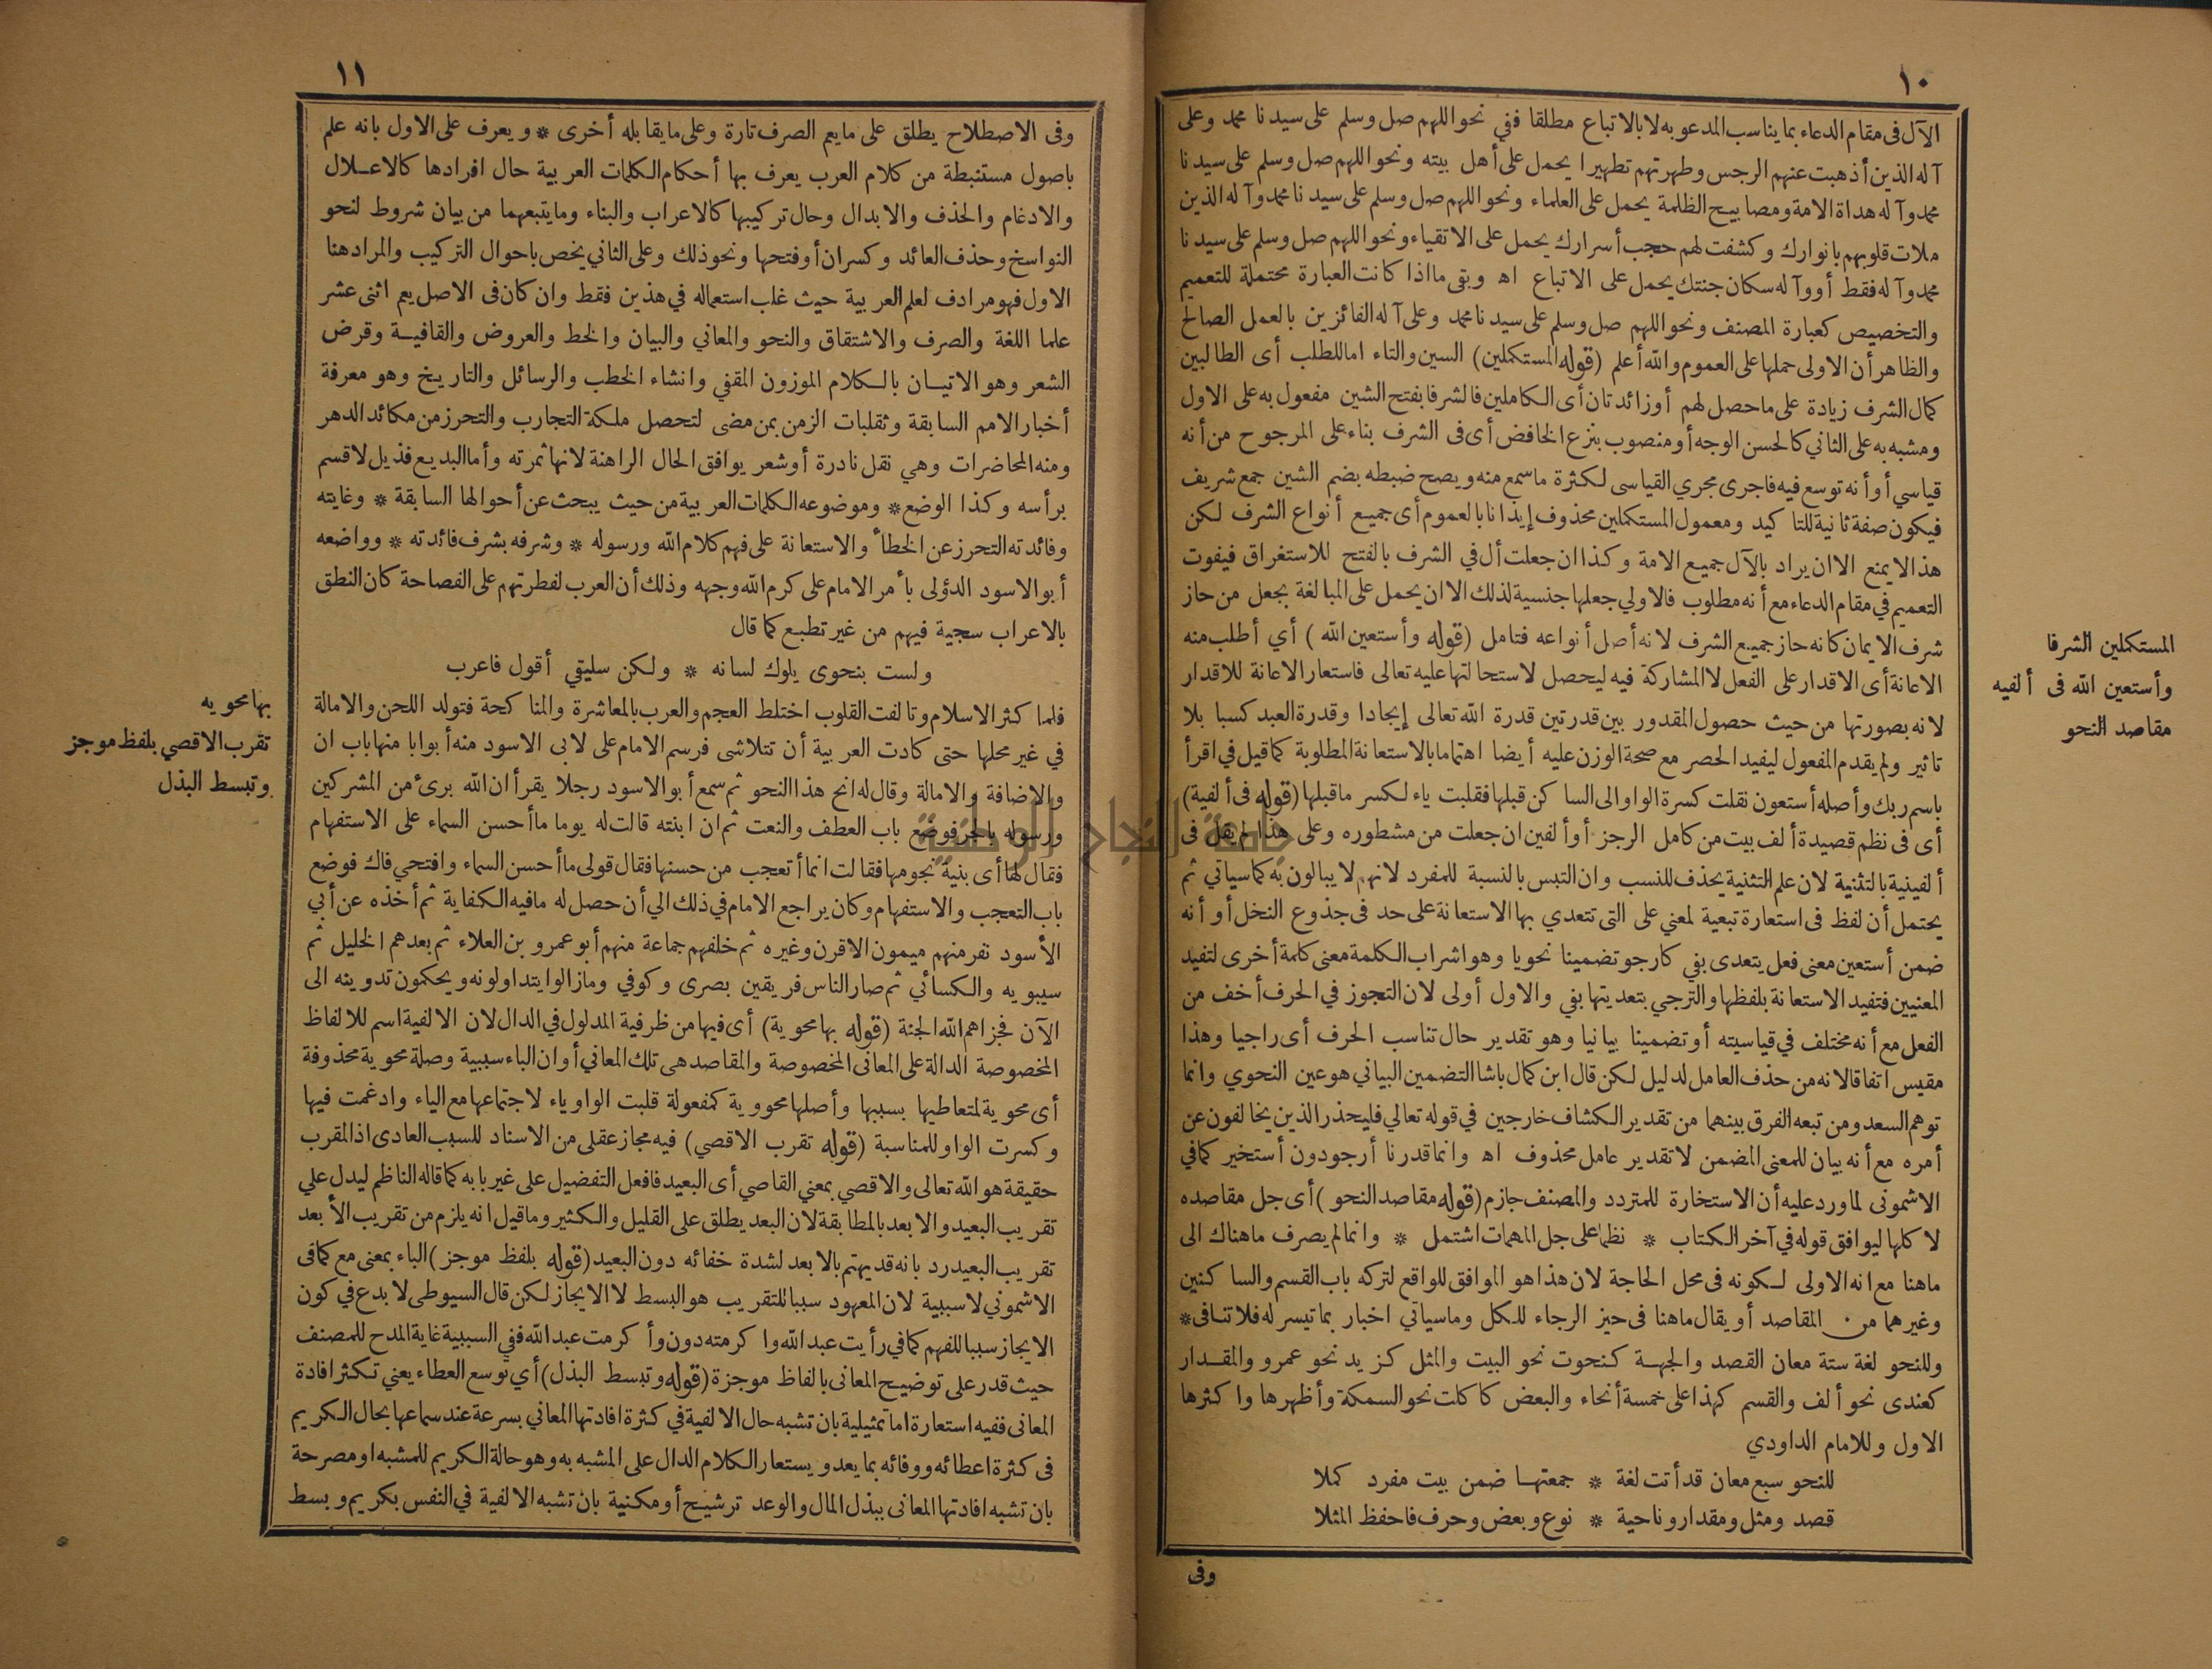 ١٠
الآل فى مقام الدعاء بما يناسب المدعو به لا بالاتباع مطلقا ففي نحو اللهم صل وسلم على سيدنا محمد وعلى
آله الذين أذهبت عنهم الرجس وطهرتهم تطهيرا يحمل على أهل بيته ونحو اللهم صل وسلم على سيدنا
محمد وآله هداة الامة ومصابيح الظلمة يحمل على العلماء ونحو اللهم صل وسلم على سيدنا محمد وآله الذين
ملات قلوبهم بانوارك وكشفت لهم حجب أسرارك يحمل على الاتقياء ونحو اللهم صل وسلم على سيدنا
محمد وآله فقط أو وآله سكان جنتك يحمل على الاتباع اه وبقى ما اذا كانت العبارة محتملة للتعميم
والتخصيص كعبارة المصنف ونحو اللهم صل وسلم على سيدنا محمد وعلى آله الفائزين بالعمل الصالح
والظاهر أن الاولى حملها على العموم والله أعلم (قوله المستكملين) السين والتاء اما للطلب أى الطالبين
كمال الشرف زيادة على ما حصل لهم أو زائدتان أى الكاملين فالشرفا بفتح الشين مفعول به على الاول
ومشبه به على الثاني كالحسن الوجه أو منصوب بنزع الخافض أى فى الشرف بناء على المرجوح من أنه
قياسي أو أنه توسع فيه فاجرى مجري القياسى لكثرة ما سمع منه ويصح ضبطه بضم الشين جمع شريف
فيكون صفة ثانية للتاكيد ومعمول المستكملين محذوف إيذانا بالعموم أى جميع أنواع الشرف لكن
هذا لا يمنع الا ان يراد بالآل جميع الامة وكذا ان جعلت أل في الشرف بالفتح للاستغراق فيفوت
التعميم في مقام الدعاء مع أنه مطلوب فالاولي جعلها جنسية لذلك الا ان يحمل على المبالغة بجعل من حاز
شرف الايمان كانه حاز جميع الشرف لانه أصل أنواعه فتامل (قوله وأستعين الله) أي أطلب منه
الاعانة أى الاقدار على الفعل لا المشاركة فيه ليحصل لاستحالتها عليه تعالى فاستعار الاعانة للاقدار
لانه بصورتها من حيث حصول المقدور بين قدرتين قدرة الله تعالى إيجادا وقدرة العبد كسبا بلا
تاثير ولم يقدم المفعول ليفيد الحصر مع صحة الوزن عليه أيضا اهتماما بالاستعانة المطلوبة كما قيل في اقرأ
باسم ربك وأصله أستعون نقلت كسرة الواو الى الساكن قبلها فقلبت ياء لكسر ما قبلها (قوله فى ألفية)
أى فى نظم قصيدة ألف بيت من كامل الرجز أو ألفين ان جعلت من مشطوره وعلى هذا لم يقل فى
ألفينية بالتثنية لان علم التثنية يحذف للنسب وان التبس بالنسبة للمفرد لانهم لا يبالون به كما سياتي ثم
يحتمل أن لفظ فى استعارة تبعية لمعني على التى تتعدي بها الاستعانة على حد فى جذوع النخل أو أنه
ضمن أستعين معنى فعل يتعدى بفي كارجو تضمينا نحويا وهو اشراب الكلمة معنى كلمة أخرى لتفيد
المعنيين فتفيد الاستعانة بلفظها والترجي بتعديتها بفي والاول أولى لان التجوز في الحرف أخف من
الفعل مع أنه مختلف في قياسيته أو تضمينا بيانيا وهو تقدير حال تناسب الحرف أى راجيا وهذا
مقيس اتفاقا لانه من حذف العامل لدليل لكن قال ابن كمال باشا التضمين البياني هو عين النحوي وانما
توهم السعد ومن تبعه الفرق بينهما من تقدير الكشاف خارجين في قوله تعالي فليحذر الذين يخالفون عن
أمره مع أنه بيان للمعنى المضمن لا تقدير عامل محذوف اه وانما قدرنا أرجو دون أستخير كما في
الاشمونى لما ورد عليه أن الاستخارة للمتردد والمصنف جازم (قوله مقاصد النحو) أى جل مقاصده
لا كلها ليوافق قوله في آخر الكتاب * نظما على جل المهمات اشتمل * وانما لم يصرف ما هناك الى
ما هنا مع انه الاولى لكونه فى محل الحاجة لان هذا هو الموافق للواقع لتركه باب القسم والساكنين
وغيرهما من المقاصد أو يقال ما هنا فى حيز الرجاء للكل وما سياتي اخبار بما تيسر له فلا تنافى *
وللنحو لغة ستة معان القصد والجهة كنحوت نحو البيت والمثل كزيد نحو عمرو والمقدار
كعندى نحو ألف والقسم كهذا على خمسة أنحاء والبعض كاكلت نحو السمكة وأظهرها واكثرها
الاول وللامام الداودي
للنحو سبع معان قد أتت لغة * جمعتها ضمن بيت مفرد كملا
قصد ومثل ومقدار وناحية * نوع وبعض وحرف فاحفظ المثلا
وفى
المستكملين الشرفا
وأستعين الله فى ألفيه
مقاصد النحو
١١
وفى الاصطلاح يطلق على ما يعم الصرف تارة وعلى ما يقابله أخرى * ويعرف على الاول بانه علم
باصول مستنبطة من كلام العرب يعرف بها أحكام الكلمات العربية حال افرادها كالاعلال
والادغام والحذف والابدال وحال تركيبها كالاعراب والبناء وما يتبعهما من بيان شروط لنحو
النواسخ وحذف العائد وكسر ان أو فتحها ونحو ذلك وعلى الثاني يخص باحوال التركيب والمراد هنا
الاول فهو مرادف لعلم العربية حيث غلب استعماله في هذين فقط وان كان فى الاصل يعم اثنى عشر
علما اللغة والصرف والاشتقاق والنحو والمعاني والبيان والخط والعروض والقافية وقرض
الشعر وهو الاتيان بالكلام الموزون المقفي وانشاء الخطب والرسائل والتاريخ وهو معرفة
أخبار الامم السابقة وتقلبات الزمن بمن مضى لتحصل ملكة التجارب والتحرز من مكائد الدهر
ومنه المحاضرات وهي نقل نادرة أو شعر يوافق الحال الراهنة لانها ثمرته وأما البديع فذيل لا قسم
برأسه وكذا الوضع * وموضوعه الكلمات العربية من حيث يبحث عن أحوالها السابقة * وغايته
وفائدته التحرز عن الخطأ والاستعانة على فهم كلام الله ورسوله * وشرفه بشرف فائدته * وواضعه
أبو الاسود الدؤلى بأمر الامام على كرم الله وجهه وذلك أن العرب لفطرتهم على الفصاحة كان النطق
بالاعراب سجية فيهم من غير تطبع كما قال
ولست بنحوى يلوك لسانه * ولكن سليقي أقول فاعرب
فلما كثر الاسلام وتالفت القلوب اختلط العجم والعرب بالمعاشرة والمناكحة فتولد اللحن والامالة
في غير محلها حتى كادت العربية أن تتلاشى فرسم الامام على لابى الاسود منه أبوابا منها باب ان
والاضافة والامالة وقال له انح هذا النحو ثم سمع أبو الاسود رجلا يقرأ ان الله برئ من المشركين
ورسوله بالجر فوضع باب العطف والنعت ثم ان ابنته قالت له يوما ما أحسن السماء على الاستفهام
فقال لها أى بنية نجومها فقالت انما أتعجب من حسنها فقال قولى ما أحسن السماء وافتحي فاك فوضع
باب التعجب والاستفهام وكان يراجع الامام في ذلك الي أن حصل له ما فيه الكفاية ثم أخذه عن أبي
الأسود نفر منهم ميمون الاقرن وغيره ثم خلفهم جماعة منهم أبو عمرو بن العلاء ثم بعدهم الخليل ثم
سيبويه والكسائي ثم صار الناس فريقين بصرى وكوفي وما زالوا يتداولونه ويحكمون تدوينه الى
الآن فجزاهم الله الجنة (قوله بها محوية) أى فيها من ظرفية المدلول في الدال لان الالفية اسم للالفاظ
المخصوصة الدالة على المعانى المخصوصة والمقاصد هى تلك المعاني أو ان الباء سببية وصلة محوية محذوفة
أى محوية لمتعاطيها بسببها وأصلها محووية كمفعولة قلبت الواو ياء لاجتماعها مع الياء وادغمت فيها
وكسرت الواو للمناسبة (قوله تقرب الاقصي) فيه مجاز عقلى من الاسناد للسبب العادى اذ المقرب
حقيقة هو الله تعالى والاقصي بمعني القاصي أى البعيد فافعل التفضيل على غير بابه كما قاله الناظم ليدل علي
تقريب البعيد والابعد بالمطابقة لان البعد يطلق على القليل والكثير وما قيل انه يلزم من تقريب الأبعد
تقريب البعيد رد بانه قد يهتم بالابعد لشدة خفائه دون البعيد (قوله بلفظ موجز) الباء بمعنى مع كما فى
الاشموني لا سببية لان المعهود سببا للتقريب هو البسط لا الايجاز لكن قال السيوطى لا بدع في كون
الايجاز سببا للفهم كما في رأيت عبد الله واكرمته دون وأكرمت عبد الله ففي السببية غاية المدح للمصنف
حيث قدر على توضيح المعانى بالفاظ موجزة (قوله وتبسط البذل) أي توسع العطاء يعني تكثر افادة
المعانى ففيه استعارة اما تمثيلية بان تشبه حال الالفية في كثرة افادتها المعاني بسرعة عند سماعها بحال الكريم
فى كثرة اعطائه ووفائه بما يعد ويستعار الكلام الدال على المشبه به وهو حالة الكريم للمشبه او مصرحة
بان تشبه افادتها المعانى ببذل المال والوعد ترشيح أو مكنية بان تشبه الالفية في النفس بكريم وبسط
بها محويه
تقرب الاقصي بلفظ موجز
وتبسط البذل
جامعة النجاح الوطنية